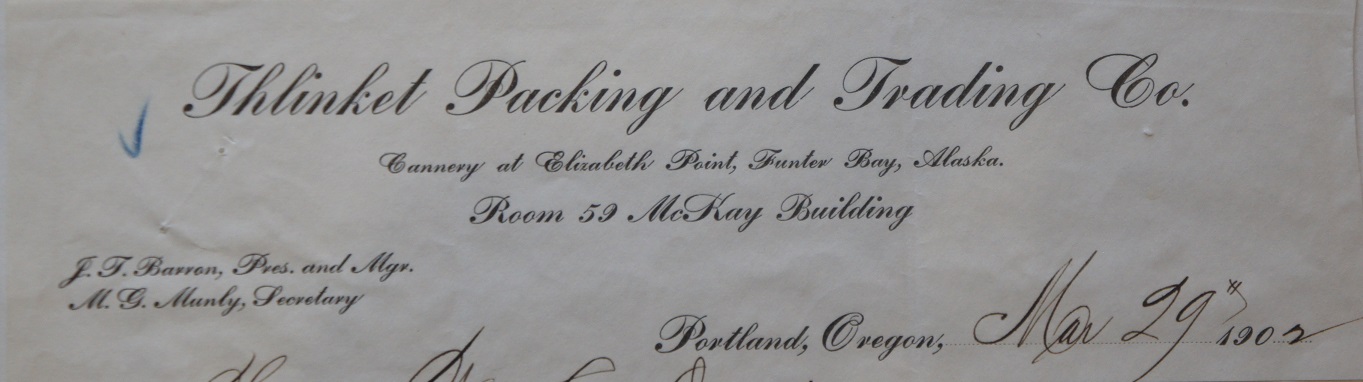 Thlinket Packing and Trading Co.
Cannery at Elizabeth Point, Funter Bay, Alaska.
Room 59 McKay Building
J. T. Barron, Pres. and Mgr.
M. G. Munly, Secretary
Portland, Oregon, Mar 29th 1902